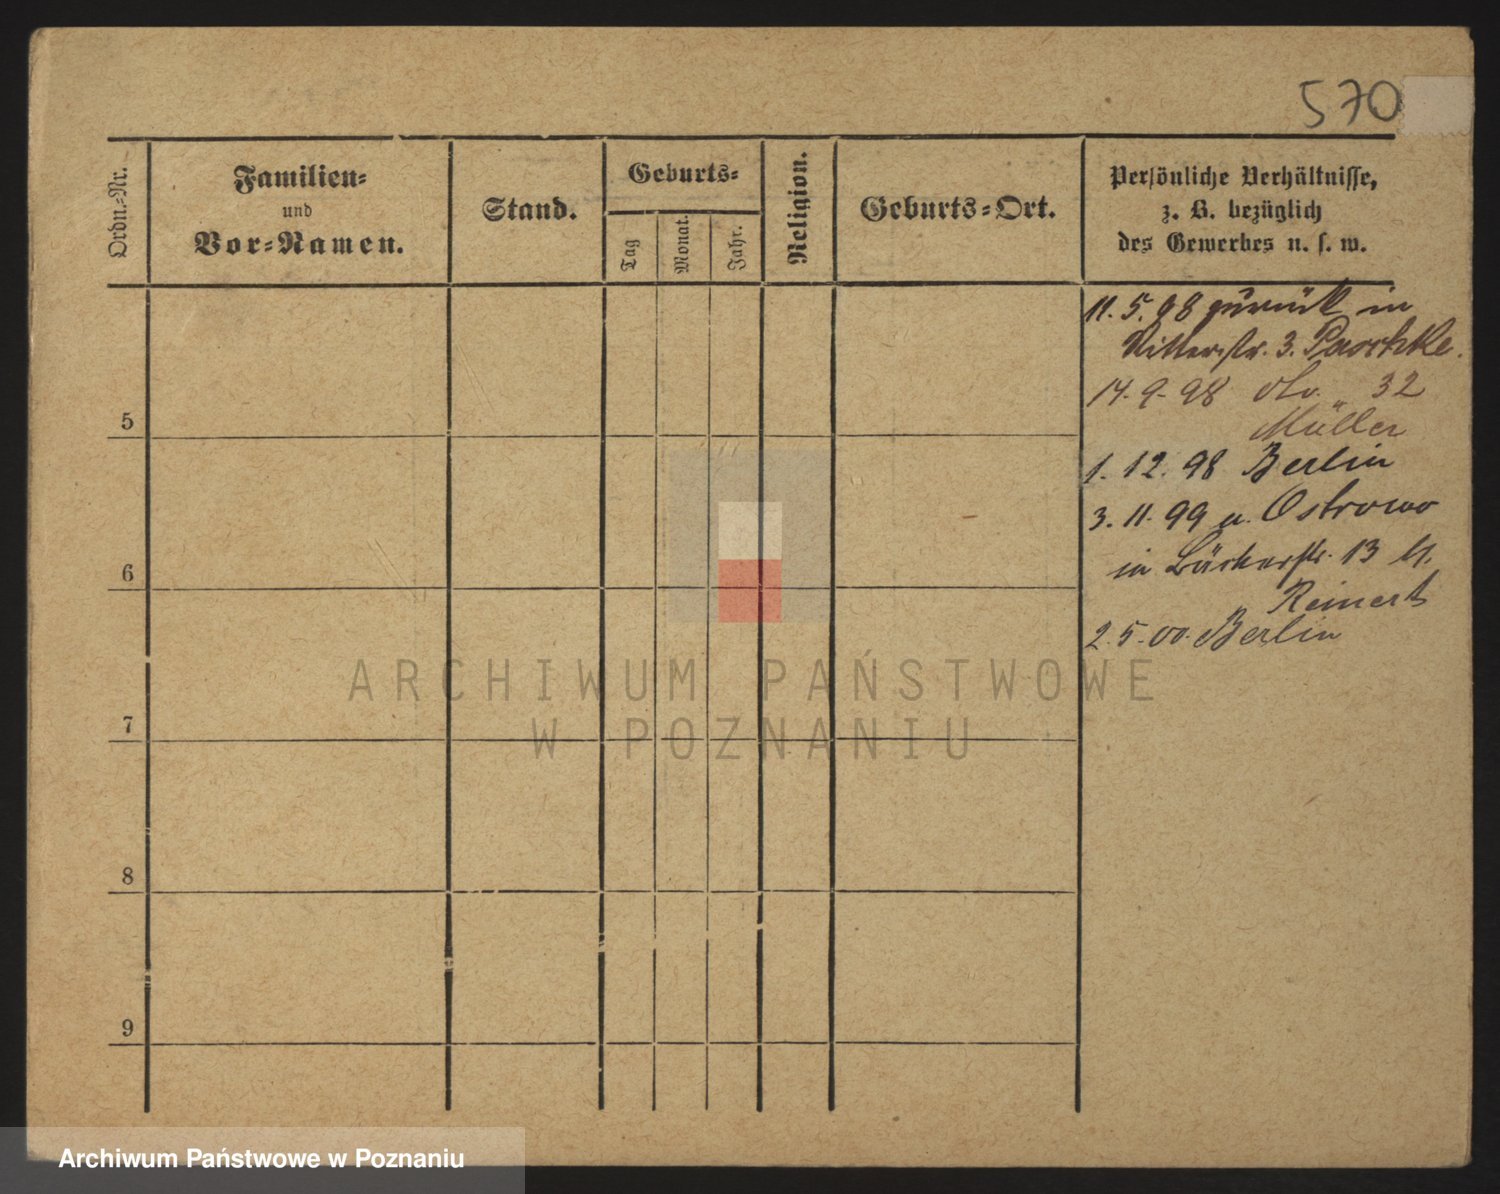 570
Ordn.-Nr.
Familien-
und
Vor-Namen.
Stand.
Geburts-
Tag
Monat.
Jahr.
Religion.
Geburts-Ort.
Persönliche Verhältnisse,
z. B. bezüglich
des Gewerbes u. s. w.
11. 5. 98 zurück in
Ritterstr. 3. Paschke.
14. 9. 98 do. " 32
Müller
1. 12. 98 Berlin
3. 11. 99 v. Ostrowo
in Bäckerstr. 13
Reinert
2. 5. 00. Berlin
5
6
7
8
9
ARCHIWUM PAŃSTWOWE
W POZNANIU
Archiwum Państwowe w Poznaniu